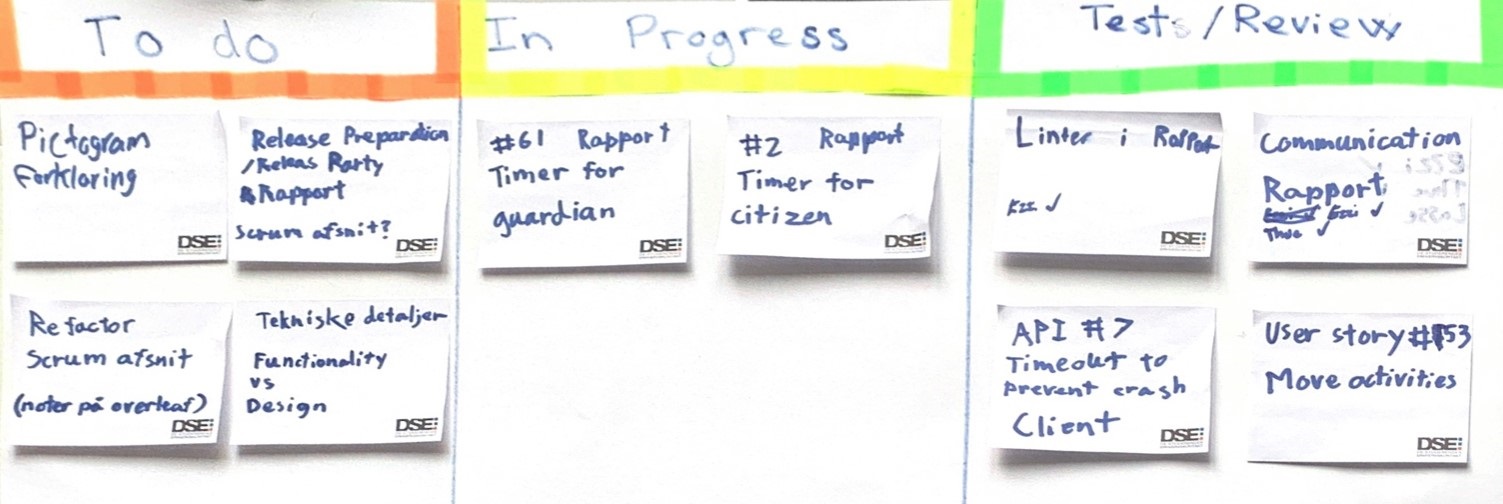 To do
Pictogram
Forklaring
DSE
Release Preparation
/Releas Party
Rapport
Scrum afsnit?
DSE
Refactor
Scrum afsnit
(noter på overleaf)
DSE
Tekniske detaljer
Functionality
vs
Design
DSE
In Progress
#61 Rapport
Timer for
guardian
DSE
#2 Rapport
Timer for
citizen
DSE
Tests/Review
Linter i Rapport
✓
DSE
Communication
Rapport
Ezzi ✓
Thue ✓
DSE
API #7
Timeout to
prevent crash
Client
DSE
User story #153
Move activities
DSE